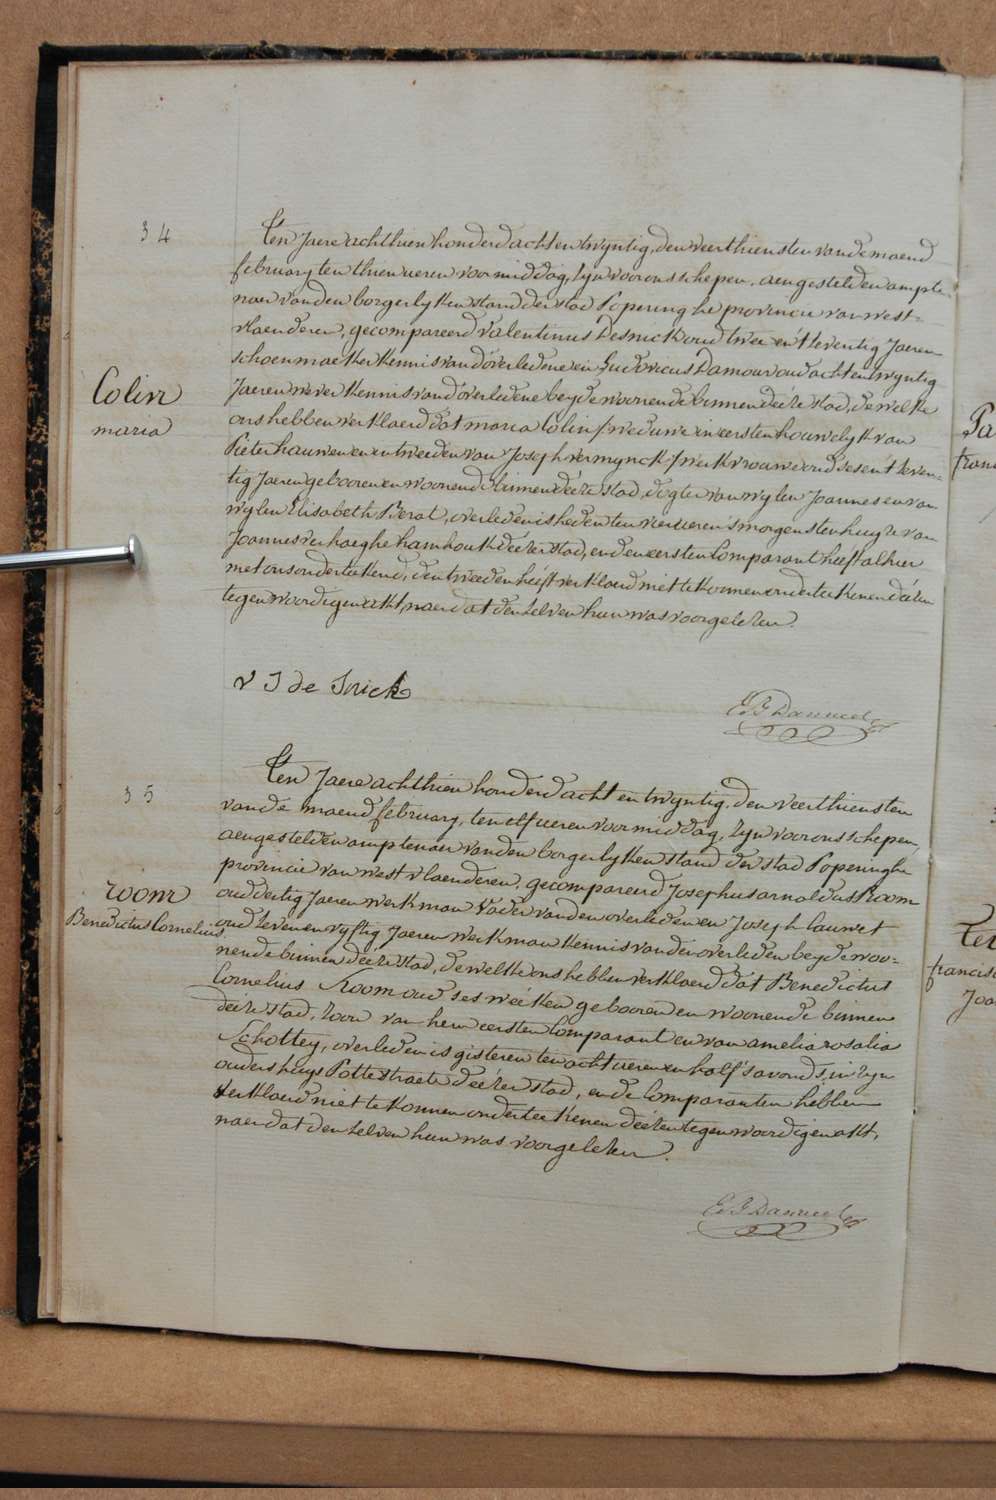 34
Colin
maria
Ten Jaere achthien honderd acht en twyntig, den veerthiensten van de maend
february ten thien ueren voormiddag, zyn voor ons schepen, aengestelden ampte-
naer van den borgerlyken stand der stad Poperinghe provincie van west-
vlaenderen, gecompareerd Valentinus Desnick oud twee en t'seventig Jaeren
schoenmaeker kennis van d'overledene en Ludovicus Damour oud acht en twyntig
Jaeren wever kennis van d'overledene beyde woonende binnen deéze stad, de welke
ons hebben verklaerd dat maria Colin /: weduwe in eersten houwelyk van
Pieter hauwen en in tweeden van Joseph vermynck :/ werkvrouwe oud ses en t'seven-
tig Jaeren gebooren en woonend binnen deéze stad, dogter van wylen Joannes en van
wylen Elisabeth Berat, overleden is heden ten vier ueren 's morgens ten huyze van
Joannes verhaeghe hamhoek deézer stad, en den eersten Comparant heeft alhier
met ons onderteekend, den tweeden heéft verklaerd niet te konnen onderteekenen deézen
tegenwoordigen akt, naer dat den zelven hun was voorgelezen.
v J de Snick
E. J. Danneel
35
room
Benedictus Cornelius
Ten Jaere achthien honderd acht en twyntig, den veerthiensten
van de maend february, ten elf ueren voormiddag, zyn voor ons schepen,
aengestelden amptenaer van den borgerlyken stand der stad Poperinghe
provincie van west vlaenderen, gecompareerd Josephus arnoldus Room
oud dertig Jaeren werkman Vader van den overledenen Joseph Cauwet
oud zeven en vyftig Jaeren werkman kennis van den overleden beyde woo-
nende binnen deéze stad, de welke ons hebben verklaerd dat Benedictus
Cornelius Room oud ses weéken gebooren en woonende binnen
deéze stad, zoon van hem eersten Comparant en van amelia rosalia
Schottey, overleden is gisteren ten acht ueren en half 's avonds, in zyn
ouders huys Pottestraete deézer stad, en de Comparanten hebben
verklaerd niet te konnen onderteekenen deézen tegenwoordigen akt,
naer dat den zelven hun was voorgelezen.
E. J. Danneel
Pa
franc
Ter
francisc
Joa